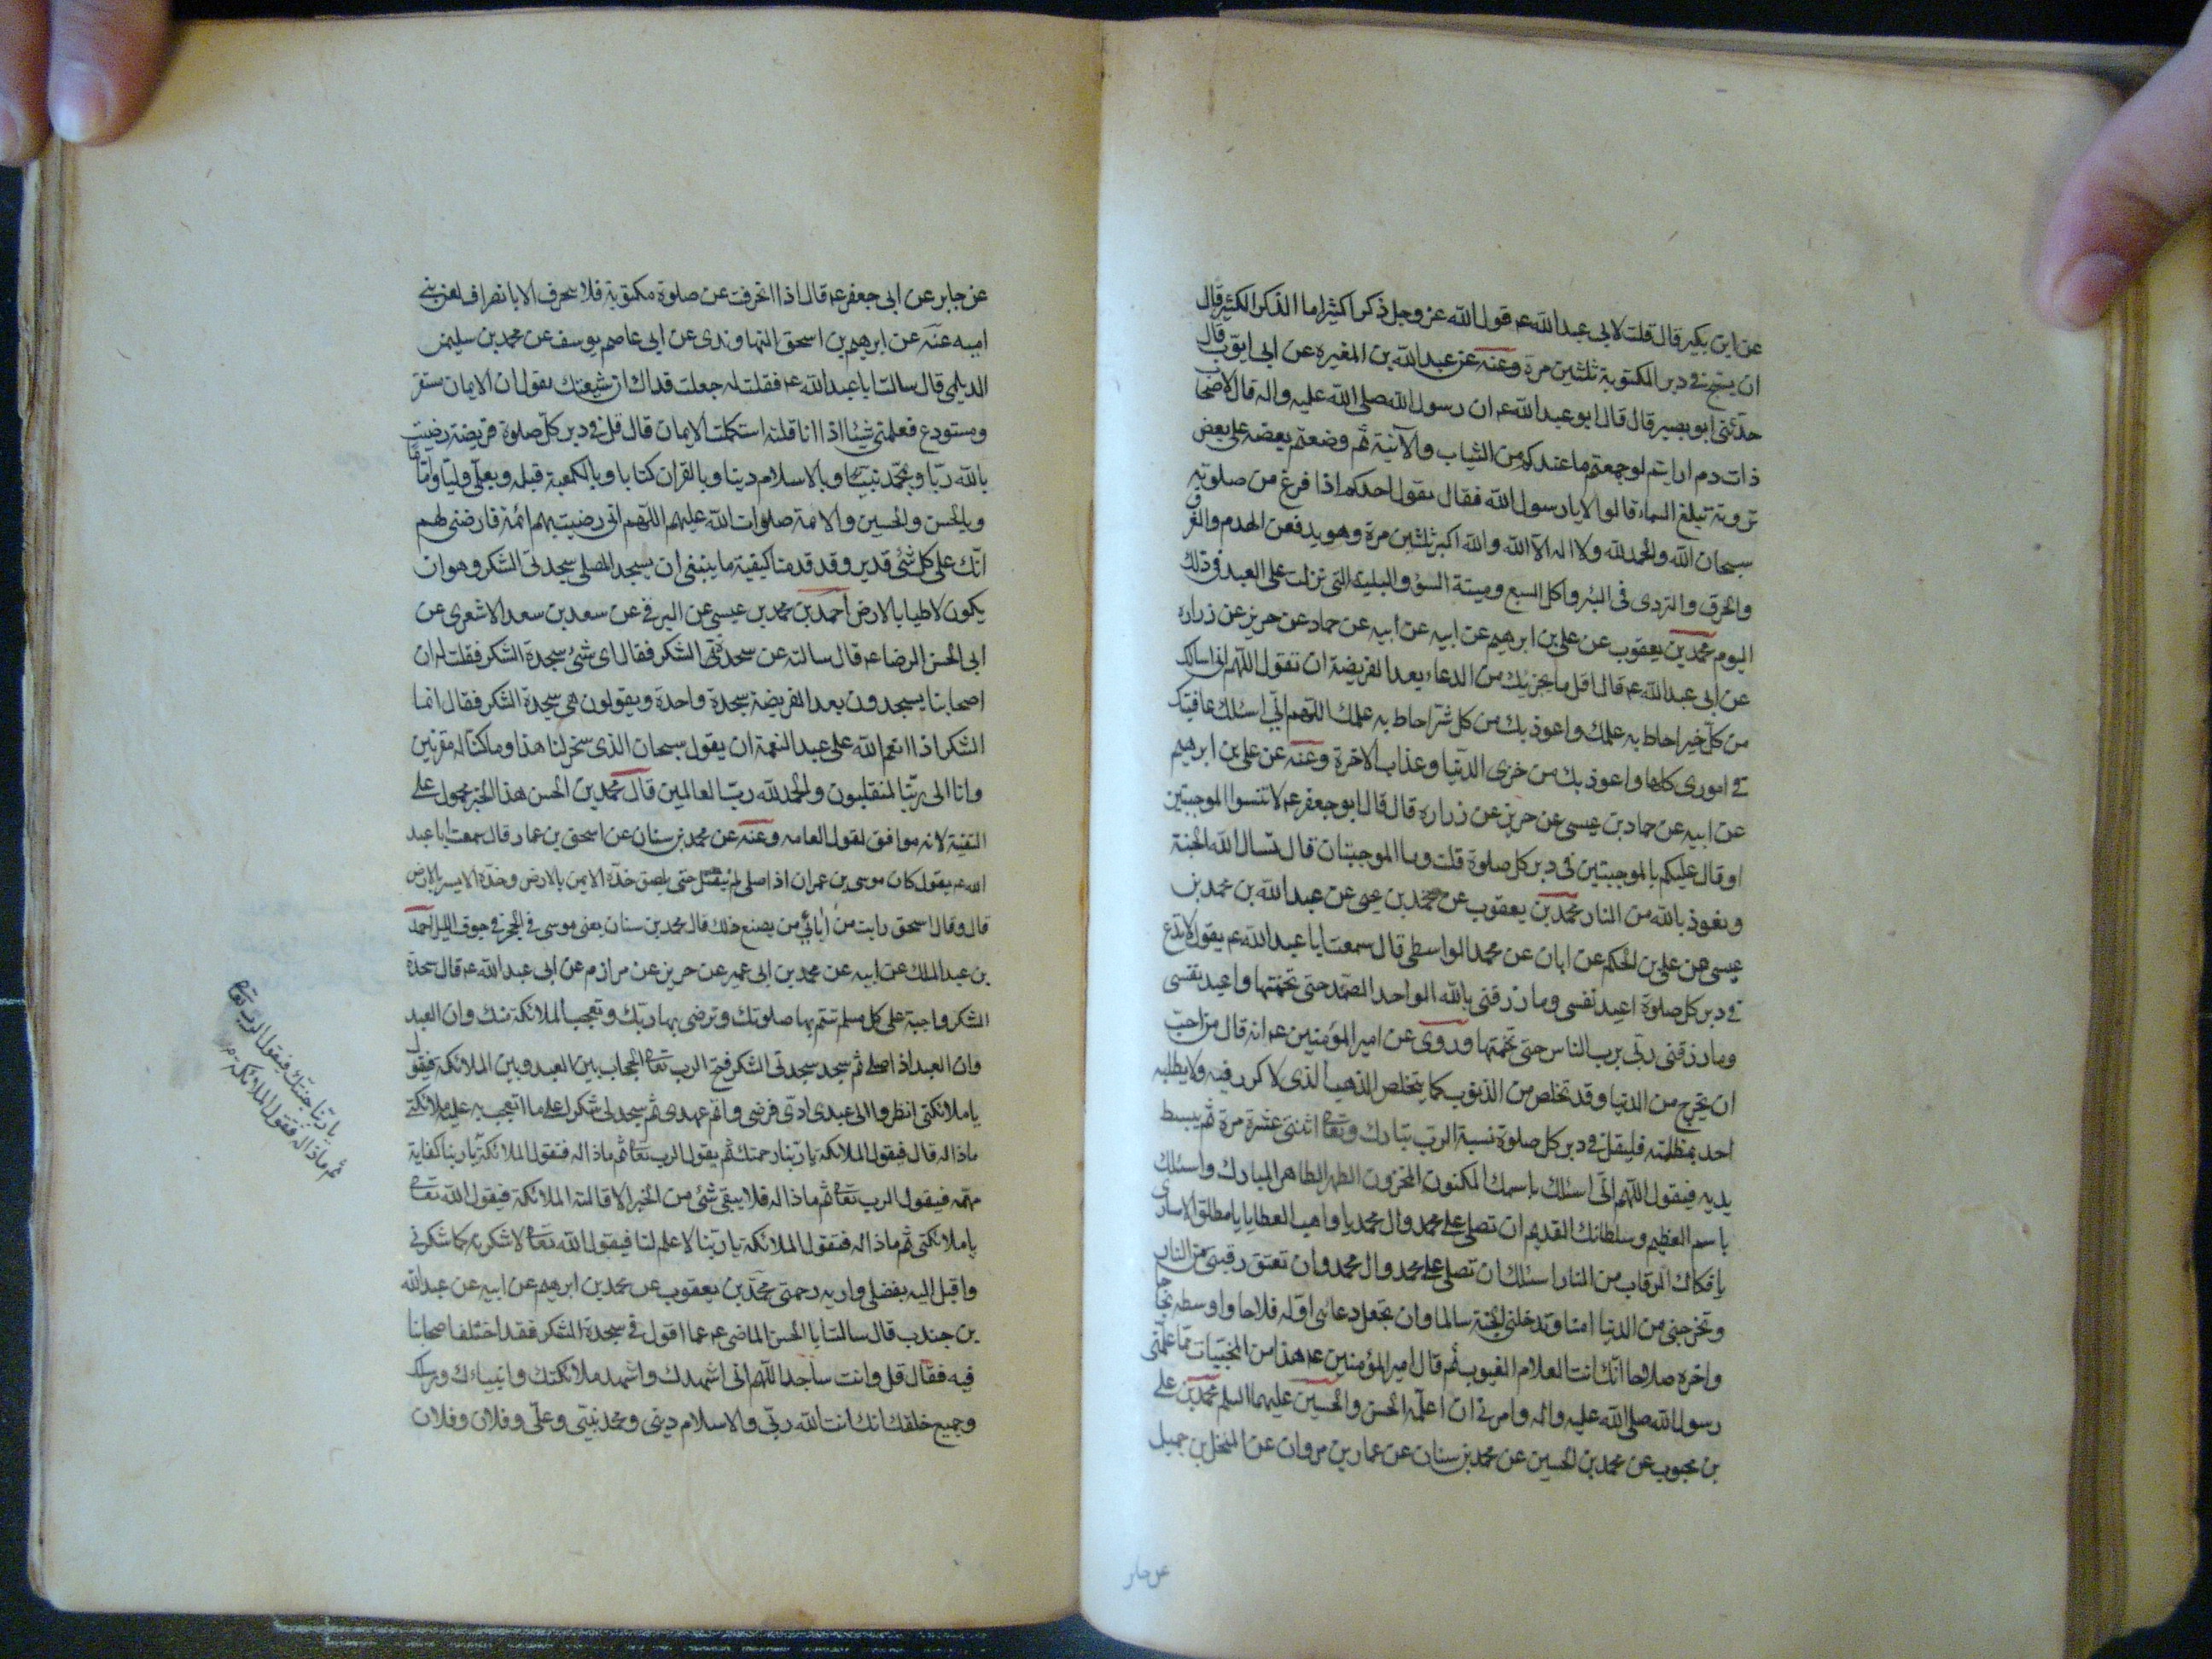 عن ابن بكير قال قلت لابي عبد الله ع قول الله عز وجل ذكرا كثيرا ما الذكر الكثير قال
ان يسبح في دبر المكتوبة ثلثين مرة وعنه عن عبد الله بن المغيره عن ابي ايوب قال
حدثني ابو بصير قال قال ابو عبد الله ع ان رسول الله صلى الله عليه واله قال لاصحا
ذات دم ارايتم لو جمعتم ما عندكم من الثياب والآنية ثم وضعتم بعضه على بعض
ترونه تبلغ السماء قالوا لا يا رسول الله فقال يقول احدكم اذا فرغ من صلوته
سبحان الله والحمد لله ولا اله الا الله والله اكبر ثلثين مرة وهو يدفعن الهدم والغرق
والحرق والتردى فى البئر واكل السبع وميتة السؤ والبلية التي نزلت على العبد في ذلك
اليوم محمد بن يعقوب عن علي بن ابرهيم عن ابيه عن ابيه عن حماد عن حريز عن زراره
عن ابى عبد الله ع قال اقل ما يجزيك من الدعاء بعد الفريضة ان تقول اللهم انى اسالك
من كل خير احاط به علمك واعوذ بك من كل شر احاط به علمك اللهم اني اسئلك عافيتك
في امورى كلها واعوذ بك من خزى الدنيا وعذاب الاخرة وعنه عن على بن ابرهيم
عن ابيه عن حماد بن عيسى عن حريز عن زراره قال قال ابو جعفر ع لا تنسوا الموجبتين
او قال عليكم بالموجبتين في دبر كل صلوة قلت وما الموجبتان قال تسال الله الجنة
وتعوذ بالله من النار محمد بن يعقوب عن محمد بن يحيى عن عبد الله بن محمد بن
عيسى عن على بن الحكم عن ابان عن محمد الواسطى قال سمعت ابا عبد الله ع يقول لا تدع
في دبر كل صلوة اعيذ نفسى وما رزقنى بالله الواحد الصمد حتى تختمها واعيذ نفسى
وما رزقنى ربى برب الناس حتى تختمها وروى عن امير المؤمنين ع انه قال من احب
ان يخرج من الدنيا وقد تخلص من الذنوب كما يتخلص الذهب الذى لا كدر فيه ولا يطلبه
احد بمظلمته فليقل في دبر كل صلوة نسبة الرب تبارك وتعا اثنتى عشرة مرة ثم يبسط
يديه فيقول اللهم انى اسئلك باسمك المكنون المخزون الطهر الطاهر المبارك واسئلك
باسم العظيم وسلطانك القديم ان تصلى على محمد وال محمد يا واهب العطايا يا مطلق الاسارى
يا فكاك الرقاب من النار اسئلك ان تصلى على محمد وال محمد وان تعتق رقبتى من النار
وتخرجنى من الدنيا امنا وتدخلنى الجنة سالما وان تجعل دعائى اوله فلاحا واوسطه نجاحا
واخره صلاحا انك انت العلام الغيوب ثم قال امير المؤمنين ع هذا من المخبيات مما علمنى
رسول الله صلى الله عليه واله وامرني ان اعلمه الحسن والحسين عليهما السلم محمد بن علي
بن محبوب عن محمد بن الحسين عن محمد بن سنان عن عمار بن مروان عن المنخل بن جميل
عن جابر
عن جابر عن ابى جعفر ع قال اذا انحرفت عن صلوة مكتوبة فلا تنحرف الا بانصراف لعن بني
اميه عنه عن ابرهيم بن اسحق النهاوندى عن ابى عاصم يوسف عن محمد بن سليمن
الديلمى قال سالت ابا عبد الله ع فقلت له جعلت فداك ان شيعتك يقول ان الايمان مستقر
ومستودع فعلمنى شيئا اذا انا قلته استكملت الايمان قال قل في دبر كل صلوة فريضة رضيت
بالله ربا وبمحمد نبيا وبالاسلام دينا وبالقران كتابا وبالكعبة قبلة وبعلى وليا واماما
وبالحسن والحسين والائمة صلوات الله عليهم اللهم انى رضيت بهم ائمة فارضنى لهم
انك على كل شئ قدير وقد قدمنا كيفية ما ينبغى ان يسجد المصلى سجدتى الشكر وهو ان
يكون لاطيا بالارض احمد بن محمد بن عيسى عن البرقى عن سعد بن سعد الاشعرى عن
ابى الحسن الرضا ع قال سالته عن سجدتى الشكر فقال اى شئ سجدة الشكر فقلت له ان
اصحابنا يسجدون بعد الفريضة سجدة واحدة ويقولون هى سجدة الشكر فقال انما
الشكر اذا انعم الله على عبد النعمة ان يقول سبحان الذى سخر لنا هذا وما كنا له مقرنين
وانا الى ربنا لمنقلبون والحمد لله رب العالمين قال محمد بن الحسن هذا الخبر محمول على
التقية لانه موافق لقول العامه وعنه عن محمد بن سنان عن اسحق بن عمار قال سمعت ابا عبد
الله ع يقول كان موسى بن عمران اذا صلى لم ينفتل حتى يلصق خده الايمن بالارض وخده الايسر بالارض
قال وقال اسحق رايت من ابائي من يصنع ذلك قال محمد بن سنان يعنى موسى فى الحجر في جوف الليل احمد
بن عبد الملك عن ابيه عن محمد بن ابى عمير عن حريز عن مرازم عن ابى عبد الله ع قال سجدة
الشكر واجبة على كل مسلم تتم بها صلوتك وترضى بها ربك وتعجب الملائكة منك وان العبد
وان العبد اذا صلى ثم سجد سجدتى الشكر فتح الرب تعا الحجاب بين العبد وبين الملائكة فيقول
يا ملائكتى انظروا الى عبدى ادى فرضى واتم عهدى ثم سجد لى شكرا على ما انعمت به عليه ملائكتي
ماذا له قال فيقول الملائكة يا ربنا رحمتك ثم يقول الرب تعا ثم ماذا له فتقول الملائكة يا ربنا كفاية
مهمه فيقول الرب تعا ثم ماذا له فلا يبقى شئ من الخير الا قالته الملائكة فيقول الله تعا
يا ملائكتى ثم ماذا له فتقول الملائكة يا ربنا لا علم لنا فيقول الله تعا لاشكرنه كما شكرنى
واقبل اليه بفضلى واريه رحمتى محمد بن يعقوب عن محمد بن ابرهيم عن ابيه عن عبد الله
بن جندب قال سالت ابا الحسن الماضى ع عما اقول في سجدة الشكر فقد اختلف اصحابنا
فيه فقال قل وانت ساجد اللهم انى اشهدك واشهد ملائكتك وانبياءك ورسلك
وجميع خلقك انك انت الله ربى والاسلام دينى ومحمد نبيى وعلى وفلان وفلان
يا ربنا جنتك فيقول الرب تعا
ثم ماذا له فتقول الملائكة